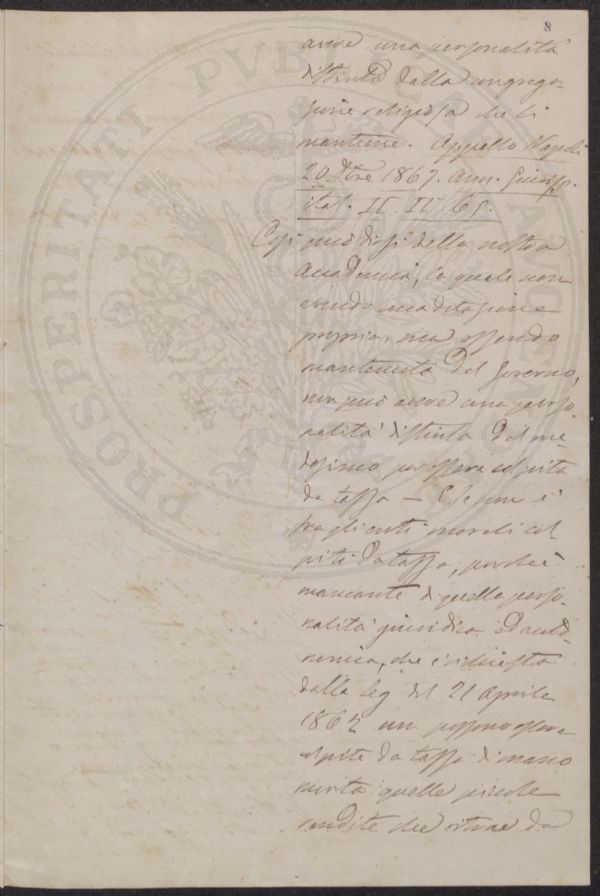 8
avere una personalità
distinta dalla congrega-
zione religiosa che li
mantiene. Appello Napoli
20 1867. Ann. Giurisp.
ital. II. II. 65.
Così può dirsi della nostra
Accademia, la quale non
avendo una dotazione
propria, ma essendo
mantenuta dal Governo,
non può avere una perso
nalità distinta dal me
desimo per essere colpita
da tassa — E se pur è
tra gli enti morali col
piti da tassa, perchè
mancante di quella perso-
nalità giuridica
che è richiesta
dalla leg del 21 Aprile
1862 non possono essere
colpite da tassa di mano
morta quelle piccole
rendite che ritrae da
PROSPERITATI PVB